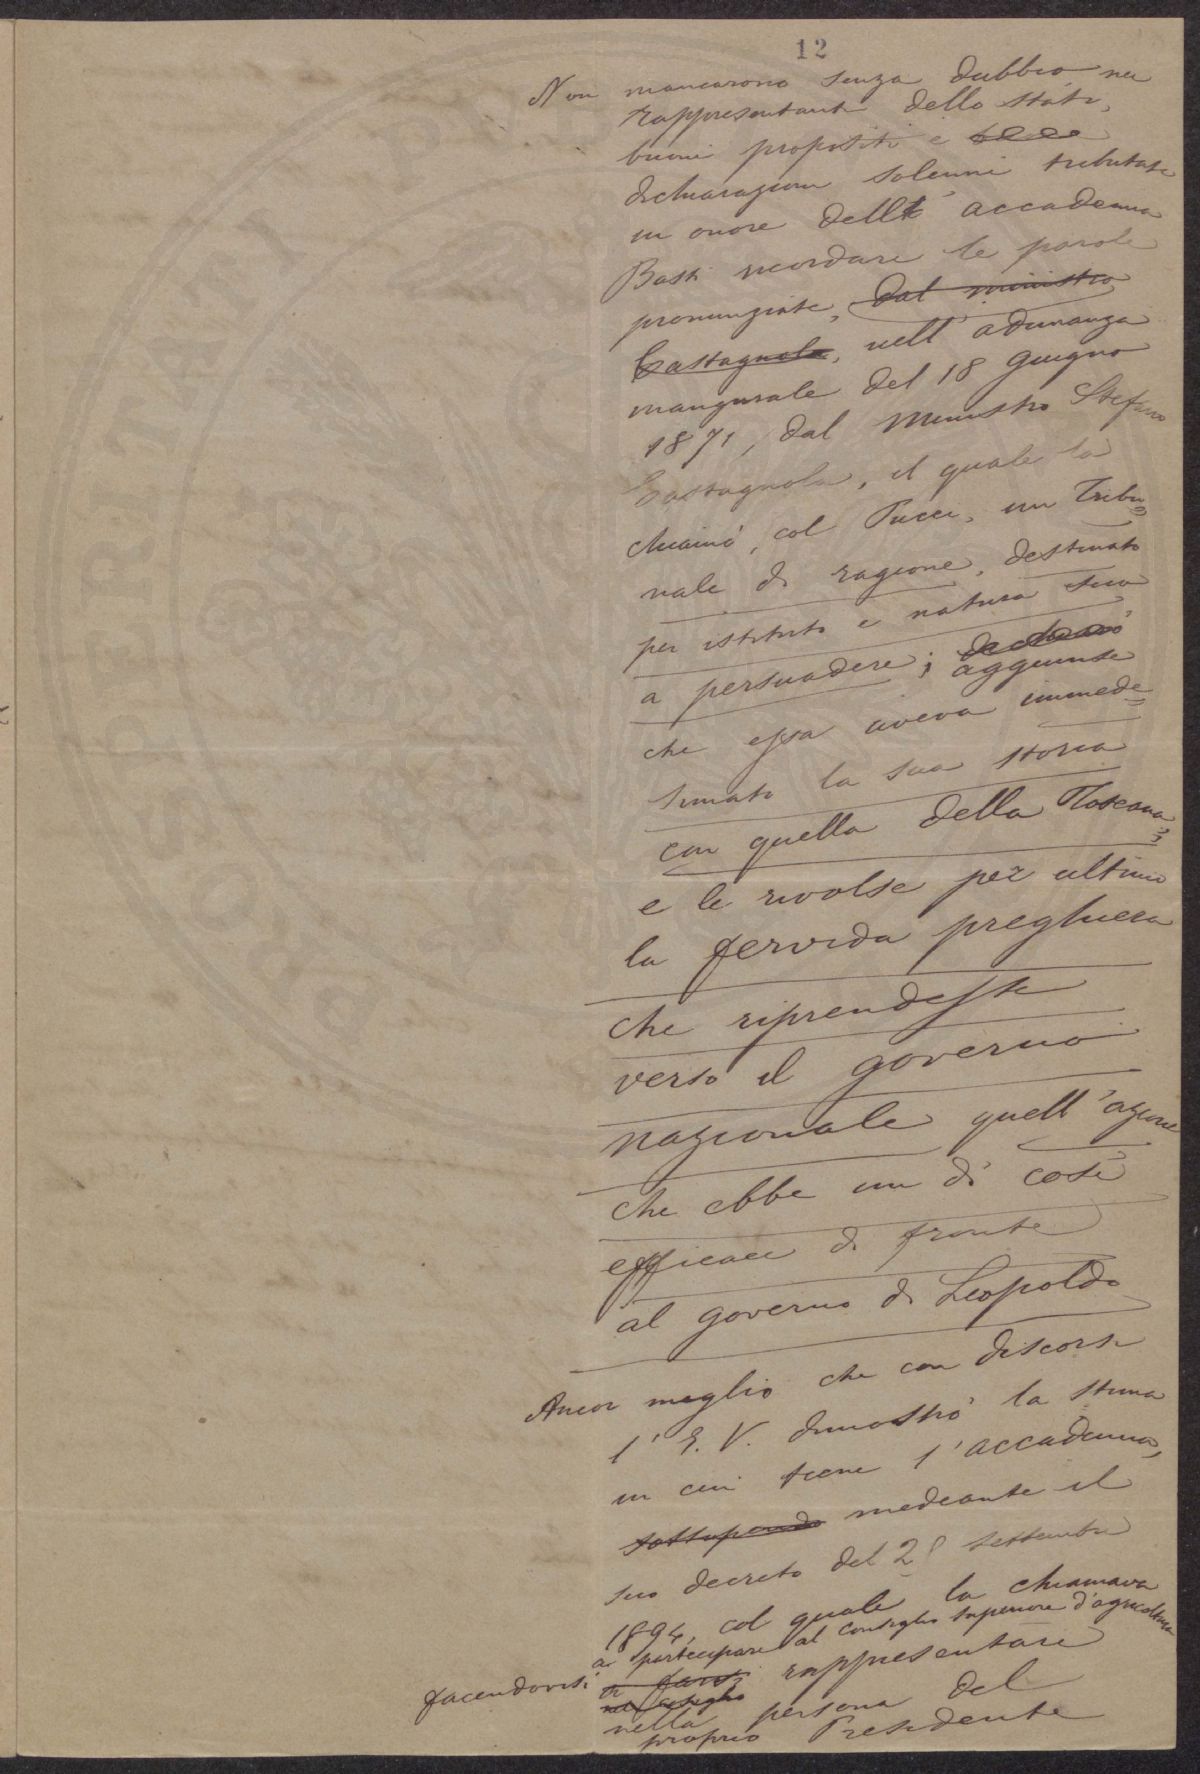 12
Non mancarono senza dubbio nei
rappresentanti dello stato,
buoni propositi e
dichiarazioni solenni tributate
in onore dell' accademia
Basti ricordare le parole
pronunziate, dal ministro
Castagnola, nell'adunanza
inaugurale del 18 giugno
1871, dal Ministro Stefano
Castagnola, il quale la
chiamò, col Pucci, un Tribu=
nale di ragione, destinato
per istituto e natura sua
a persuadere; dichiarò
aggiunse
che essa aveva immede=
simato la sua storia
con quella della Toscana;
e le rivolse per ultimo
la fervida preghiera
che riprendesse
verso il governo
nazionale quell'azione
che ebbe un dì così
efficace di fronte
al governo di Leopoldo
Ancor meglio che con discorsi
l'E. V. dimostrò la stima
in cui tiene l'accademia,
mediante il
suo decreto del settembre
1894, col quale la chiamava
a partecipare al consiglio superiore d'agricoltura
facendovisi rappresentare
nella persona del
proprio Presidente